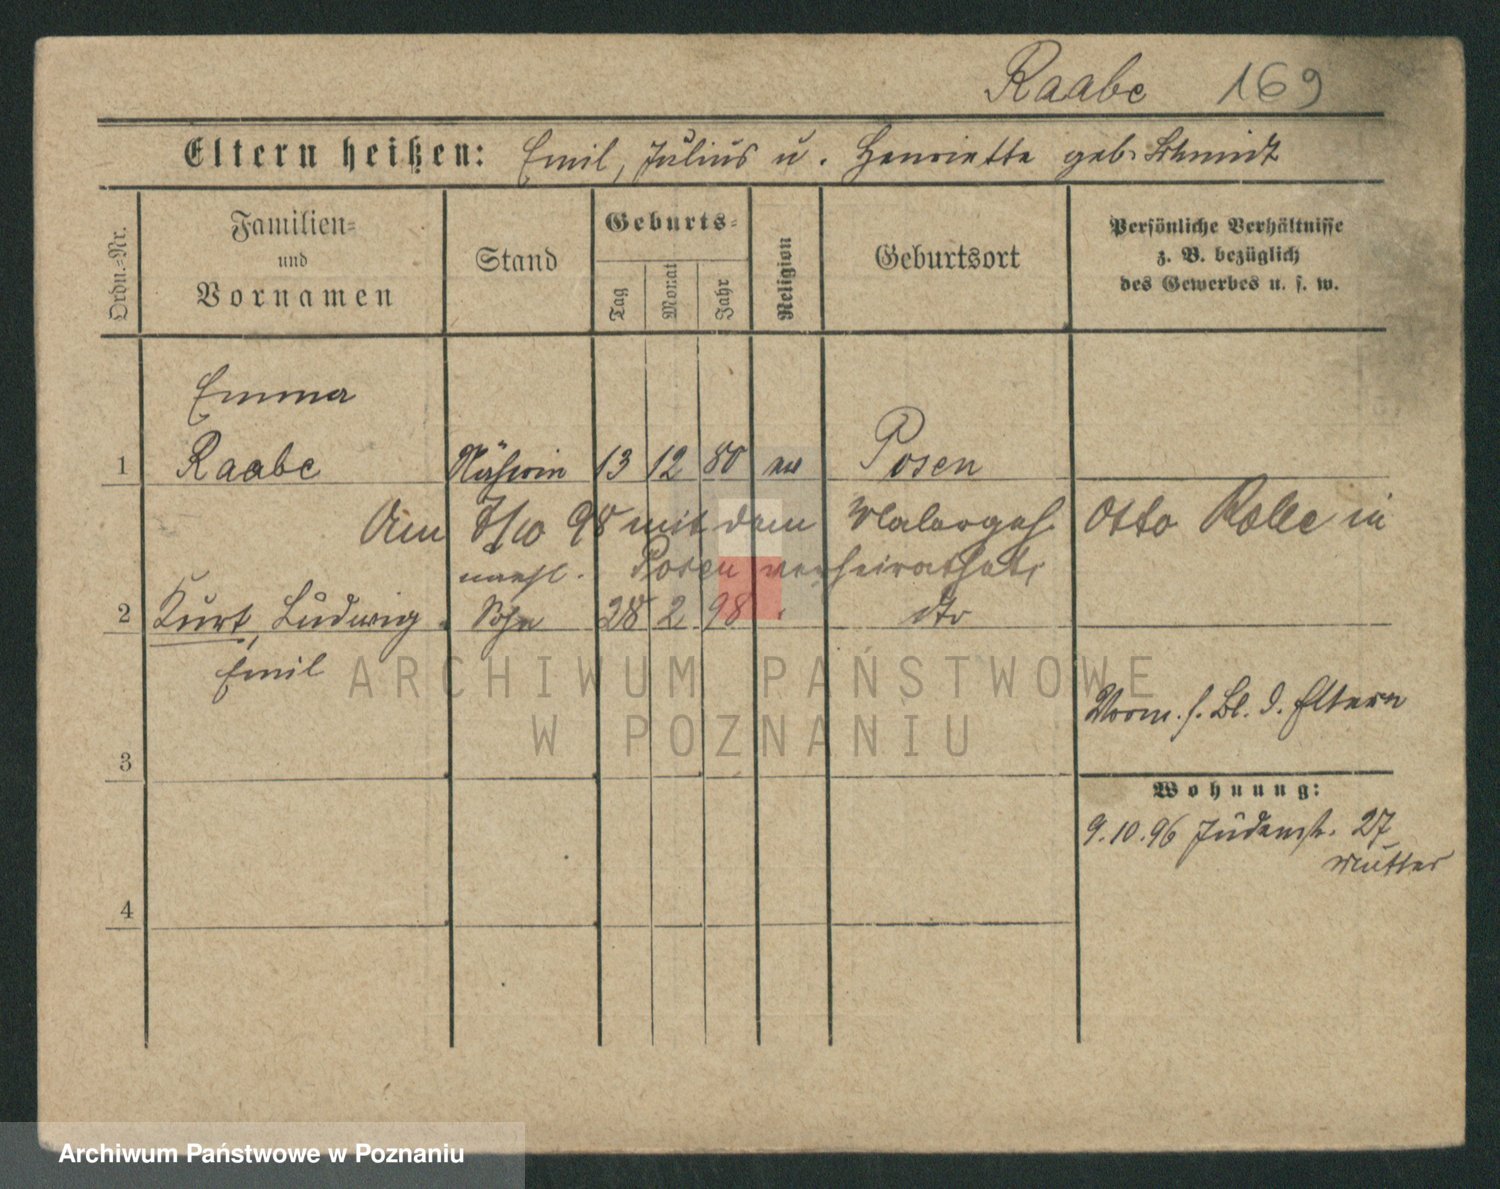 Raabe 169
Eltern heißen: Emil, Julius u. Henriette geb. Schmidt
Ordn.-Nr.
Familien-
und
Vornamen
Stand
Geburts-
Tag
Monat
Jahr
Religion
Geburtsort
Persönliche Verhältnisse
z. B. bezüglich
des Gewerbes u. s. w.
Emma
1 Raabe Näherin 13 12 80 ev Posen
Am 8/10 98 mit dem Malergeh. Otto Rolle in
Posen verheirathet.
unehl.
2 Kurt, Ludwig Sohn 28 2 98 " dto
Emil
Vorm. s. Bl. d. Eltern
3
Wohnung:
9.10.96 Judenstr. 27
Mutter
4
ARCHIWUM PAŃSTWOWE
W POZNANIU
Archiwum Państwowe w Poznaniu